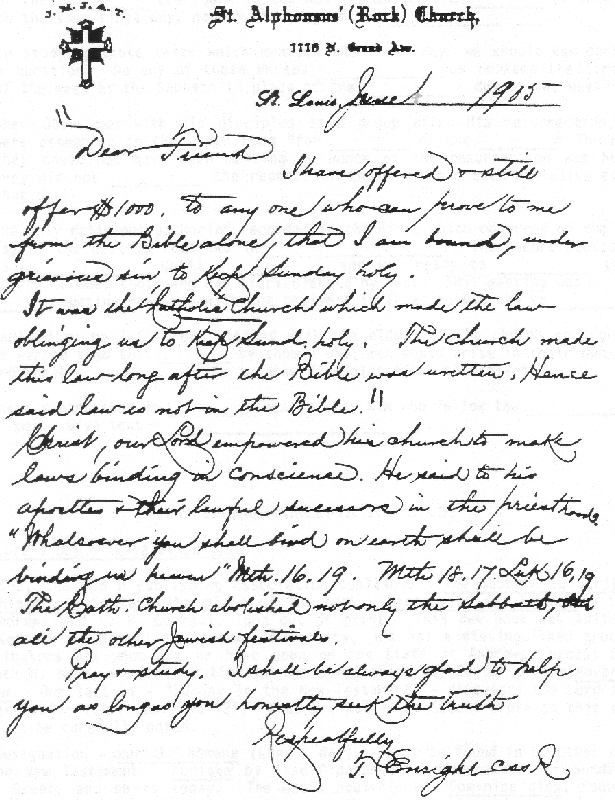 J. M. J. A. T.
St. Alphonsus' (Rock) Church,
1118 N. Grand Ave.
St. Louis, June 1905
"Dear Friend
I have offered & still
offer $1000. to any one who can prove to me
from the Bible alone, that I am bound, under
grievous sin to Keep Sunday holy.
It was the Catholic Church which made the law
oblinging us to Keep Sund. holy. The church made
this law long after the Bible was written. Hence
said law is not in the Bible."
Christ, our Lord empowered his church to make
laws binding in conscience. He said to his
apostles & their lawful sucessors in the priesthood
"Whatsoever you shall bind on earth shall be
binding in heaven" Mth. 16.19. Mth 18.17. Luk 16,19
The Cath. Church abolished not only the Sabbath, but
all the other Jewish festivals.
Pray & study. I shall be always glad to help
you as long as you honestly seek the truth
Respectfully
T. Enright CSSR